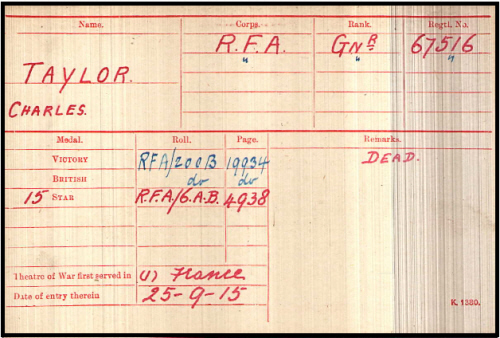 Name. Corps. Rank. Regtl. No.
R.F.A. GNR 67516
" " "
TAYLOR.
CHARLES.
Medal. Roll. Page. Remarks.
VICTORY RFA/200B 19934 DEAD.
BRITISH do do
15 STAR R.F.A./6.A.B. 4938
Theatre of War first served in (1) France
Date of entry therein 25-9-15
K. 1380.